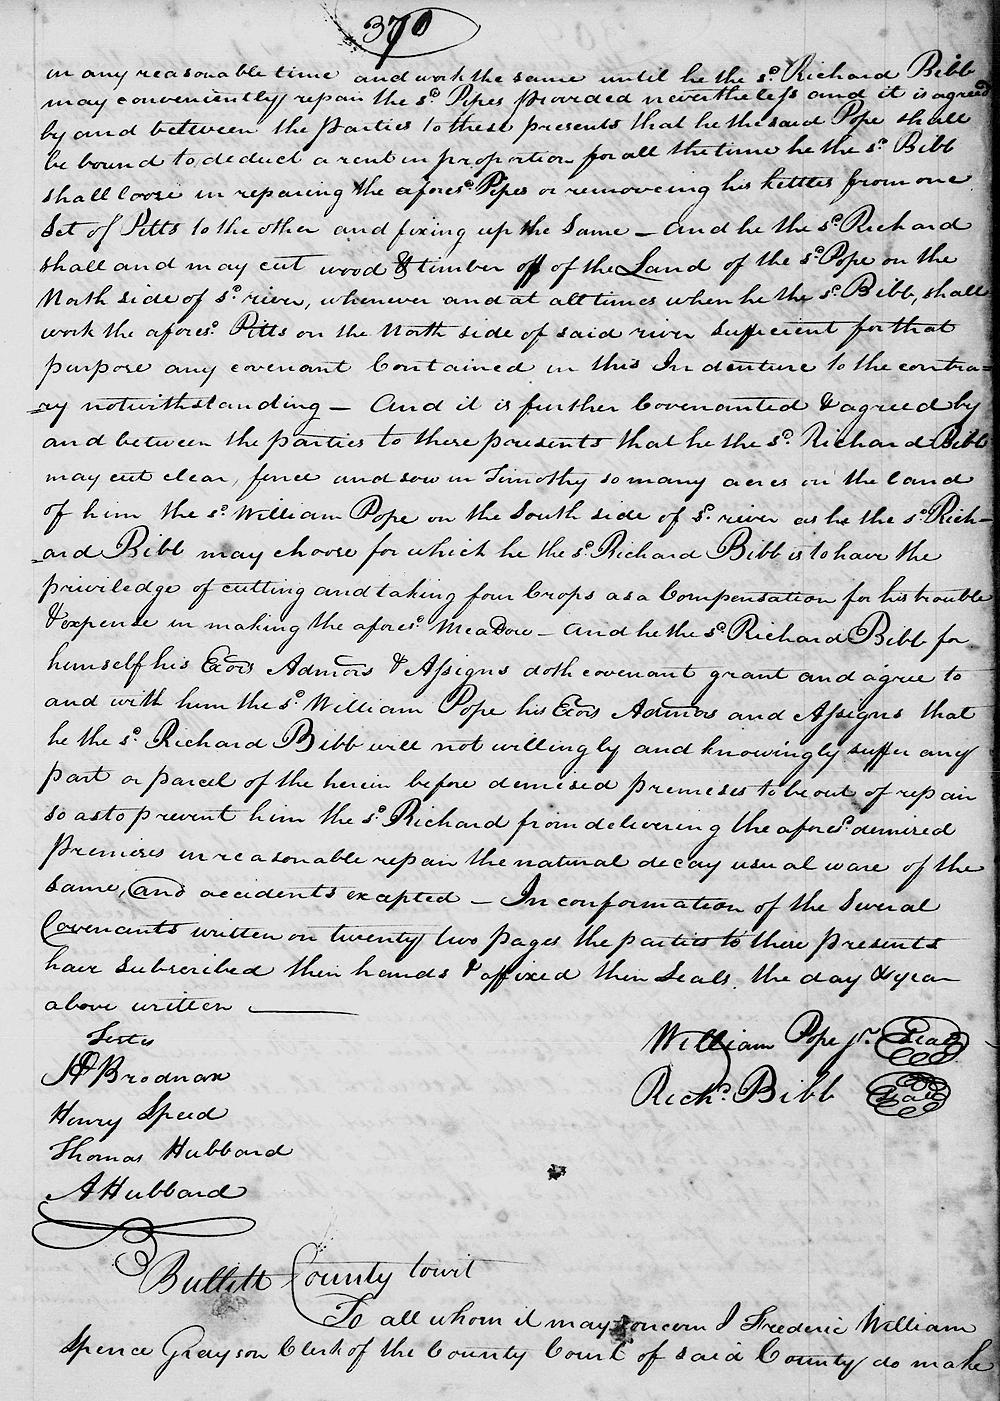 370
in any reasonable time and work the same until he the sd. Richard Bibb
may conveniently repair the sd. Pipes provided nevertheless and it is agreed
by and between the parties to these presents that he the said Pope shall
be bound to deduct a rent in proportion for all the time he the sd. Bibb
shall loose in reparing the aforesd. Pipes or removeing his kettles from one
Set of Pitts to the other and fixing up the Same – And he the sd. Richard
shall and may cut wood & timber off of the Land of the sd. Pope on the
North side of sd. river, whenever and at all times when he the sd. Bibb, shall
work the aforesd. Pitts on the North side of said river Sufficient for that
purpose any covenant Contained in this Indenture to the contra=
=ry notwithstanding – And it is further Covenanted & agreed by
and between the parties to these presents that he the sd. Richard Bibb
may cut clear, fence and sow in Timothy so many acres on the land
of him the sd. William Pope on the South side of sd. river as he the sd. Rich=
=ard Bibb may choose for which he the sd. Richard Bibb is to have the
priviledge of cutting and taking four Crops as a Compensation for his trouble
& expense in making the aforesd. Meadow – And he the sd. Richard Bibb for
himself his Exors Admors & Assigns doth covenant grant and agree to
and with him the sd. William Pope his Exors Admors and Assigns that
he the sd. Richard Bibb will not willingly and knowingly suffer any
part or parcel of the herein before demised premeses to be out of repair
so as to prevent him the sd. Richard from delivering the aforesd. demised
Premises in reasonable repair the natural decay usual ware of the
same, and accidents excepted – In conformation of the Several
Covenants written on twenty two pages the parties to these presents
have Subscribed their hands & affixed their Seals, the day & year
above written
Testes
William Pope jr. Seal
HP Brodnax
Richd. Bibb Seal
Henry Speed
Thomas Hubbard
A Hubbard
Bullitt County towit
To all whom it may concern I Frederic William
Spence Grayson Clerk of the County Court of said County do make